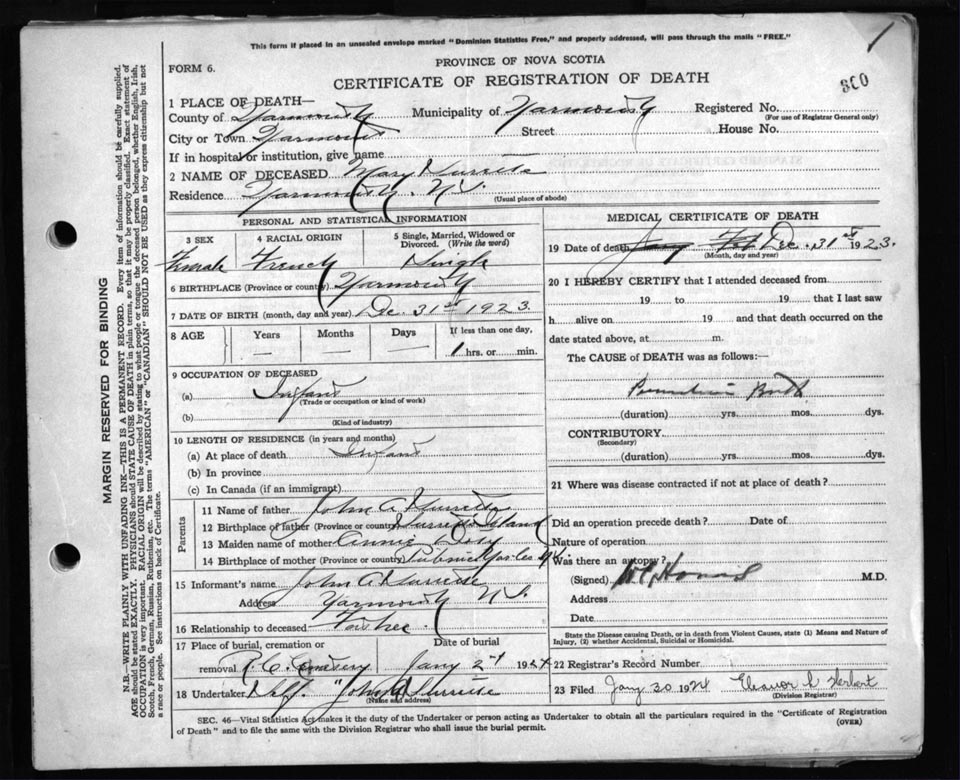 This form if placed in an unsealed envelope marked "Dominion Statistics Free," and property addressed, will pass through the mails "FREE."
1
FORM 6.
PROVINCE OF NOVA SCOTIA
CERTIFICATE OF REGISTRATION OF DEATH
300
1 PLACE OF DEATH—
County of Yarmouth Municipality of Yarmouth Registered No.
(For use of Registrar General only)
City or Town Yarmouth Street House No.
If in hospital or institution, give name
2 NAME OF DECEASED Mary Surette
Residence Yarmouth N.S.
(Usual place of abode)
PERSONAL AND STATISTICAL INFORMATION
3 SEX 4 RACIAL ORIGIN 5 Single, Married, Widowed or Divorced. (Write the word)
Female French Single
6 BIRTHPLACE (Province or country) Yarmouth
7 DATE OF BIRTH (month, day and year) Dec. 31st 1923.
8 AGE Years Months Days If less than one day,
— — — 1 hrs. or min.
9 OCCUPATION OF DECEASED
(a) Infant
(Trade or occupation or kind of work)
(b)
(Kind of industry)
10 LENGTH OF RESIDENCE (in years and months)
(a) At place of death Infant
(b) In province
(c) In Canada (if an immigrant)
Parents
11 Name of father John A Surette
12 Birthplace of father (Province or country) Surettes Island
13 Maiden name of mother Annie
14 Birthplace of mother (Province or country) Pubnico Yar Co N.S.
15 Informant's name John A Surette
Address Yarmouth N.S.
16 Relationship to deceased Father
17 Place of burial, cremation or removal R. C. Cemetery
Date of burial Jany 2nd 1924
18 Undertaker John A Surette
(Name and address)
MEDICAL CERTIFICATE OF DEATH
19 Date of death Dec. 31st 1923.
(Month, day and year)
20 I HEREBY CERTIFY that I attended deceased from
19 to 19 that I last saw
h alive on 19 and that death occurred on the
date stated above, at m.
The CAUSE of DEATH was as follows:—
Premature Birth
(duration) yrs. mos. dys.
CONTRIBUTORY
(Secondary)
(duration) yrs. mos. dys.
21 Where was disease contracted if not at place of death?
Did an operation precede death? Date of
Nature of operation
Was there an autopsy?
(Signed) M.D.
Address
Date
State the Disease causing Death, or in death from Violent Causes, state (1) Means and Nature of Injury, (2) whether Accidental, Suicidal or Homicidal.
22 Registrar's Record Number
23 Filed Jany 30 1924 Eleanor Herbert
(Division Registrar)
SEC. 46—Vital Statistics Act makes it the duty of the Undertaker or person acting as Undertaker to obtain all the particulars required in the "Certificate of Registration
of Death" and to file the same with the Division Registrar who shall issue the burial permit.
(OVER)
MARGIN RESERVED FOR BINDING
N.B.—WRITE PLAINLY WITH UNFADING INK—THIS IS A PERMANENT RECORD. Every item of information should be carefully supplied.
AGE should be stated EXACTLY. PHYSICIANS should STATE CAUSE OF DEATH in plain terms, so that it may be properly classified. Exact statement of
OCCUPATION is very important. RACIAL ORIGIN will be described by stating to what people or tongue the deceased person belonged, whether English, Irish,
Scotch, French, German, Russian, Ruthenian, etc. The terms "AMERICAN" or "CANADIAN" SHOULD NOT BE USED as they express citizenship but not
a race or people. See instructions on back of Certificate.